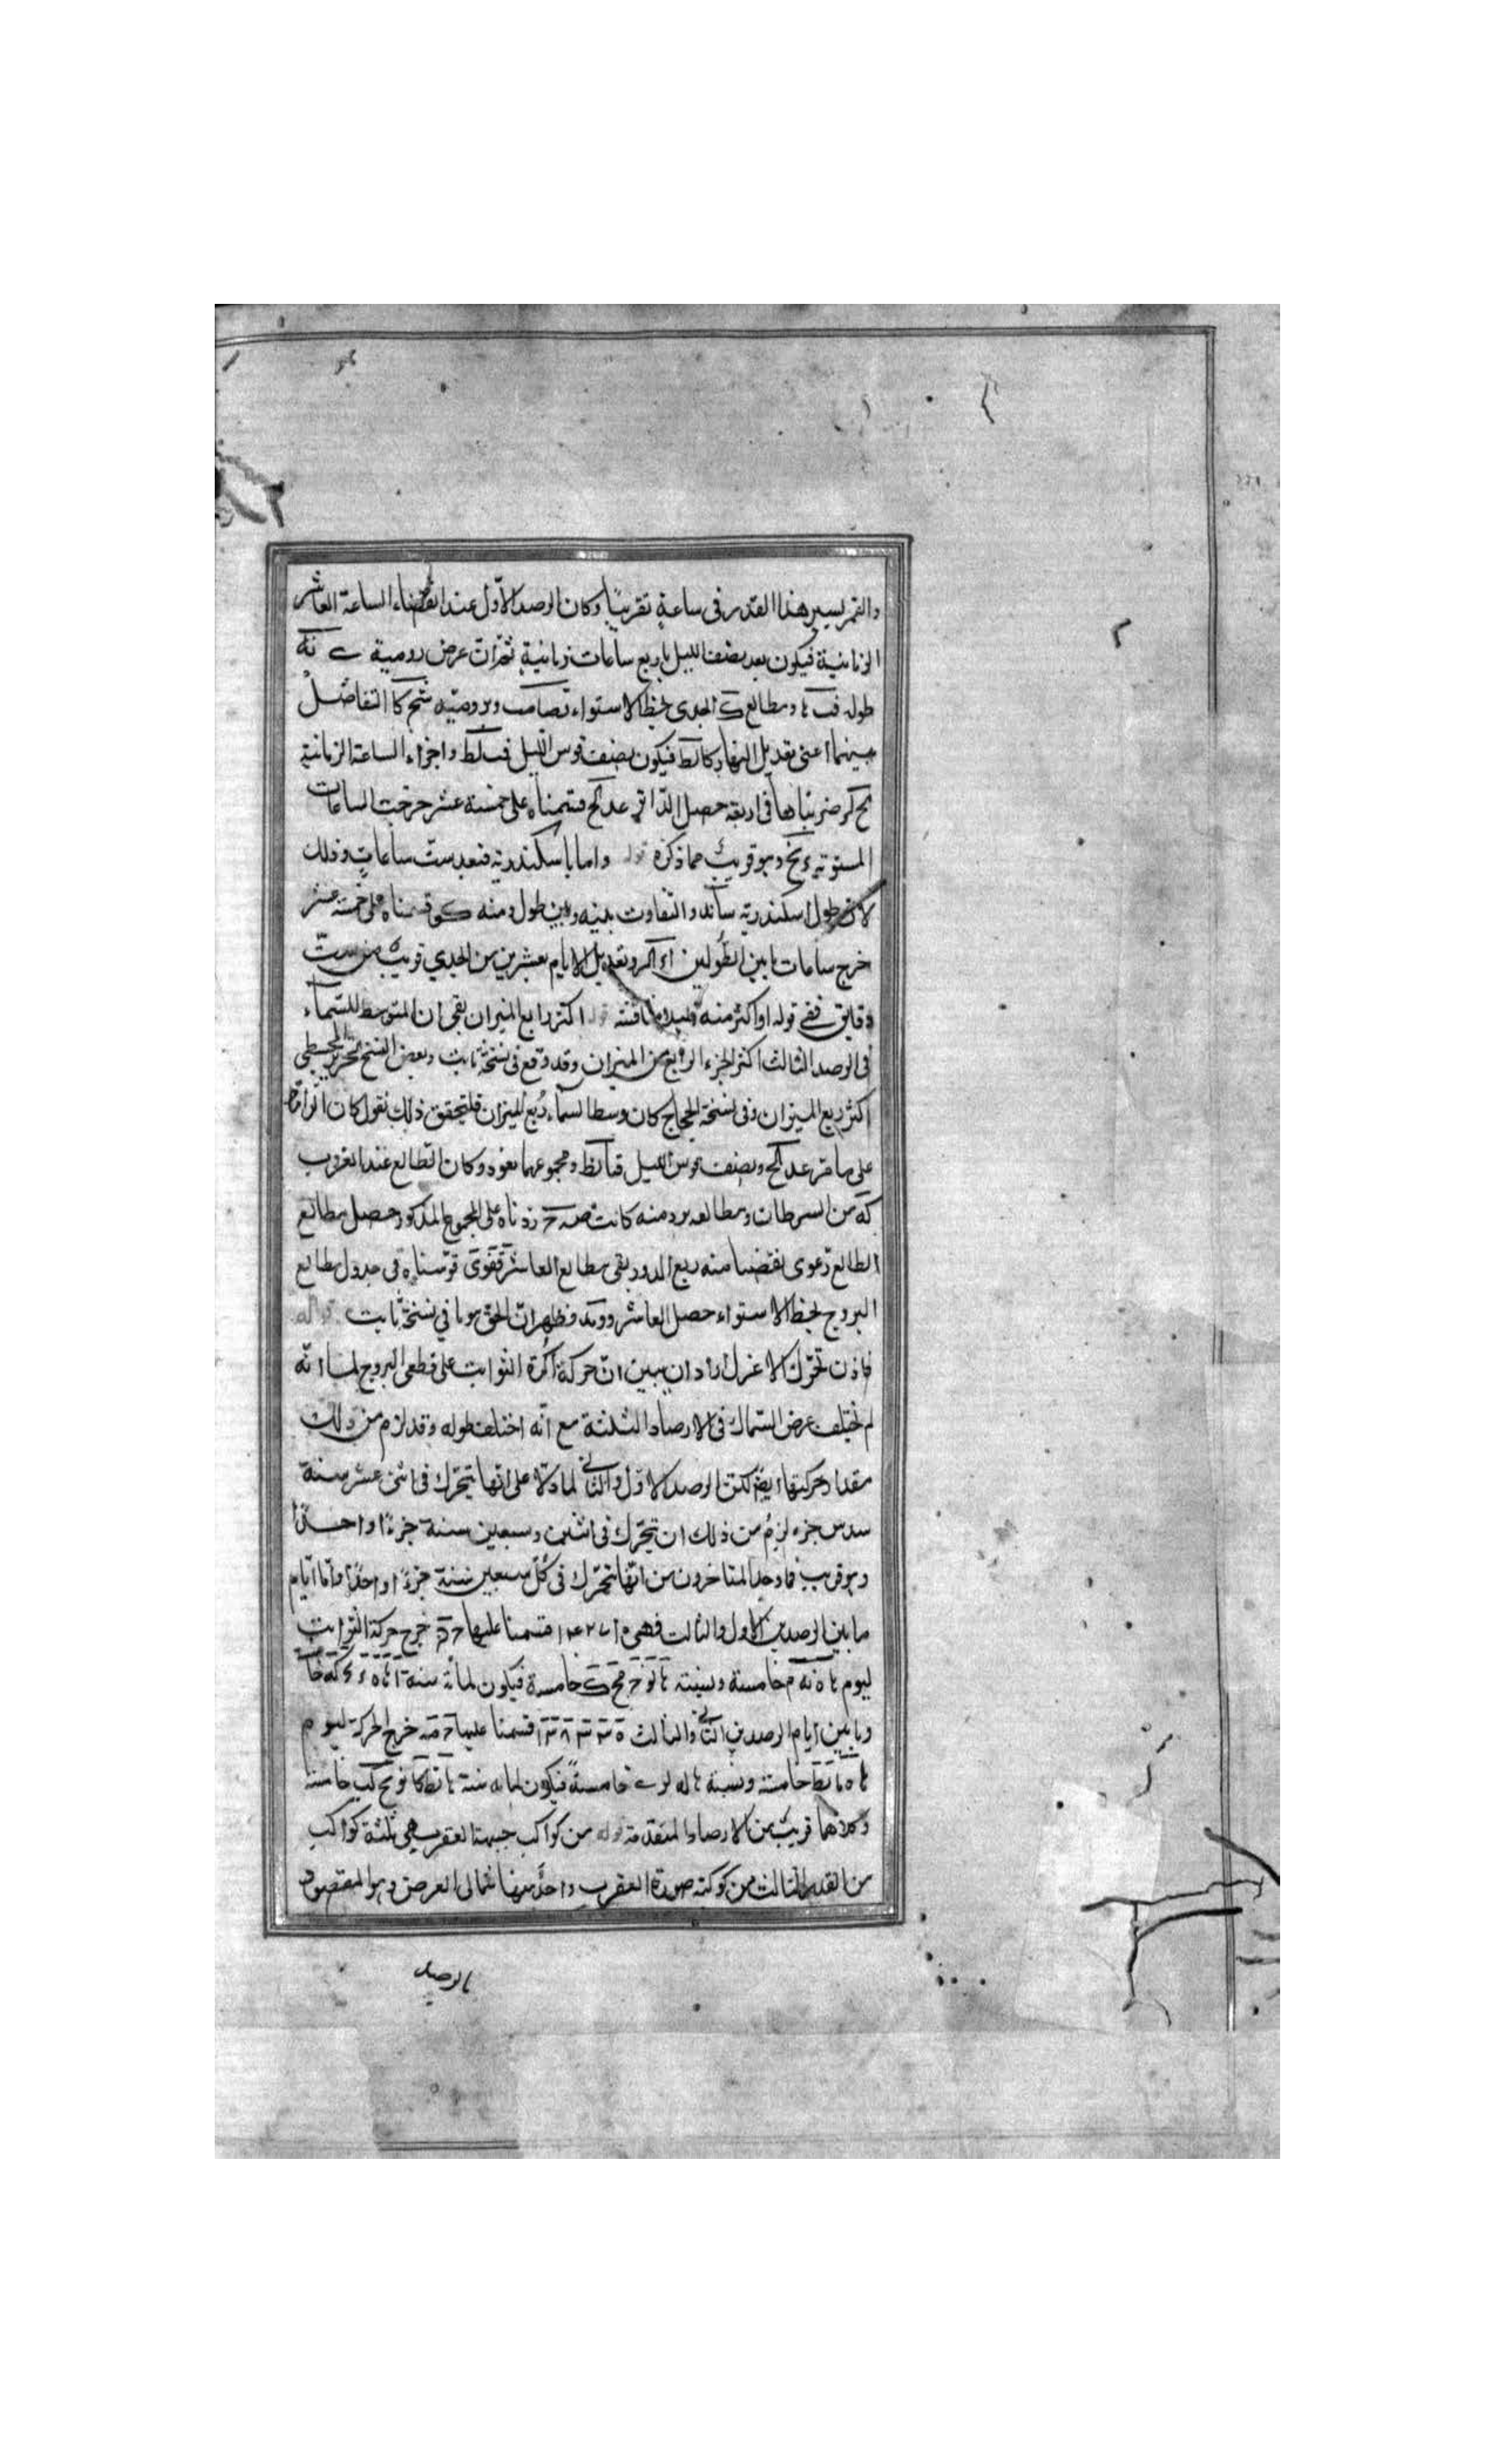 والقمر يسير هذا القدر فى ساعةٍ تقريبًا وكان الرصد الاوّل عند انقضاء الساعة العاشر
الزمانية فيكون بعد نصف الليل باربع ساعات زمانية ثم ان عرض رومية
طوله ومطالع ك الجدى بخط الاستواء وبرومية التفاضل
بينهما اعنى تعديل النهار كا لط فيكون نصف قوس الليل قب لط واجزاء الساعة الزمانية
ضربناها فى اربعة حصل الدائر عد كح قسمناه على خمسة عشر خرجت الساعات
المستوية وهو قريب مما ذكره قوله واما باسكندرية فبعد ستّ ساعاتٍ وذلك
لان طول اسكندرية والتفاوت بينه وبين طول رومنه كو قسمناه على خمسة عشر
خرج ساعات ما بين الطولين وتعديل الايام بعشرين من الجدي قريب من ستّ
دقايق ففى قوله او اكثر منه قوله اكثر رابع الميزان بقى ان المتوسط للسّماء
فى الرصد الثالث اكثر الجزء الرابع من الميزان وقد وقع فى نسخة ثابت وبعض النسخ لتحرير المجسطى
اكثر ربع الميزان وفى نسخة الحجاج كان وسط السماء ربع الميزان فلتحقق ذلك نقول كان الدائر
على ما مر عد كح ونصف قوس الليل قب لط ومجموعهما وكان الطالع عند الغروب
كه من السرطان ومطالعه برومنه كانت زدناه على المجموع المذكور حصل مطالع
الطالع نقصنا منه ربع الدور بقى مطالع العاشر قوّسناه فى جدول مطالع
البروج بخط الاستواء حصل العاشر فظهر انّ الحق هو ما في نسخة ثابت قوله
فاذن تحرّك الاعزل اراد ان يبين انّ حركة اكرة الثوابت على قطبى البروج لما انّه
لم يختلف عرض السّماك فى الارصاد الثلثة مع انّه اختلف طوله وقد لزم من ذلك
مقدار حركتها ايضًا لكن الرصد الاوّل والثانى لما دلّا على انّها يتحرّك فى اثنى عشر سنة
سدس جزء لزم من ذلك ان يتحرّك فى اثنين وسبعين سنة جزءًا واحدًا
وهو قريب مما وجد المتاخرون من انّها تتحرّك فى كلّ سبعين سنة جزءًا واحدًا وامّا ايّام
ما بين الرصدين الاول والثالث فهى قسمنا عليها خرج حركة الثوابت
ليوم خامسة ولسنة خامسة فيكون لمائة سنة
وما بين ايام الرصدين الثانى والثالث قسمنا عليها خرج الحركة ليوم
خامسة ولسنة خامسةً فيكون لمايه سنة خامسة
وكلاهما قريب من الارصاد المتقدمة قوله من كواكب جبهة العقرب هى ثلثة كواكب
من القدر الثالث من كوكبة صورة العقرب واحدٌ منها شمالى العرض وهو المقصود
بالرصد